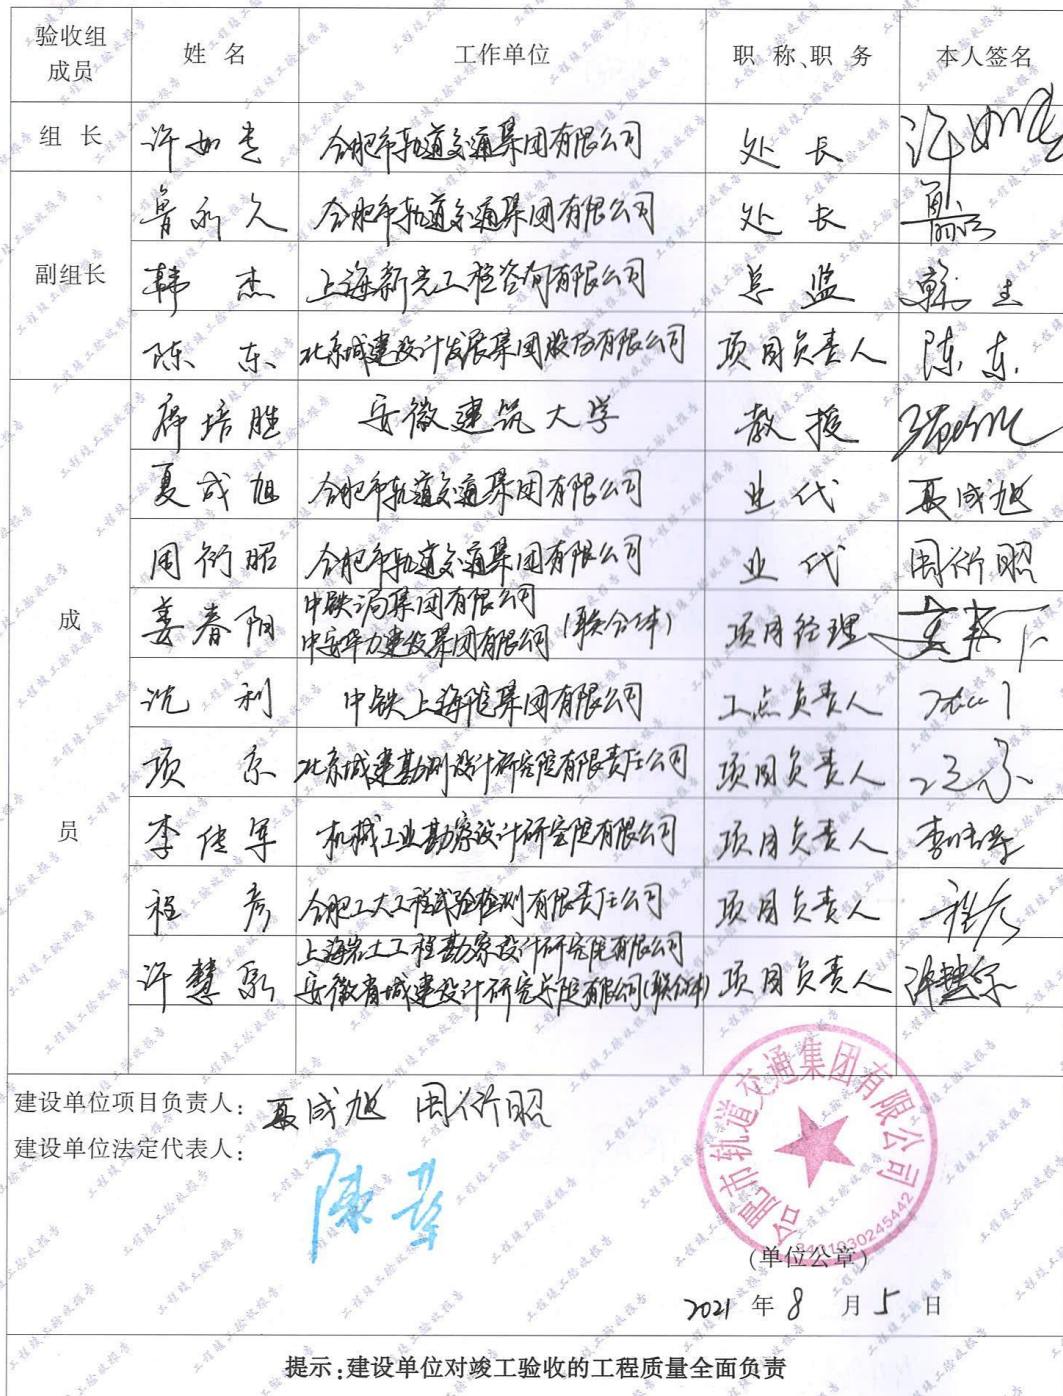 验收组成员 姓 名 工作单位 职 称、职 务 本人签名
组 长 许如 合肥市轨道交通集团有限公司 处 长
鲁永久 合肥市轨道交通集团有限公司 处 长
副组长 韩 杰 上海新光工程咨询有限公司 总 监 韩杰
陈 东 北京城建设计发展集团股份有限公司 项目负责人 陈东
培胜 安徽建筑大学 教 授
夏成旭 合肥市轨道交通集团有限公司 业 代 夏成旭
周衍昭 合肥市轨道交通集团有限公司 业 代 周衍昭
成 姜春阳 中铁 局集团有限公司
中安华力建设集团有限公司 (联合体) 项目经理
沈 利 中铁上海 集团有限公司 工点负责人
项 京 北京城建勘测设计研究院有限责任公司 项目负责人
员 李传军 机械工业勘察设计研究院有限公司 项目负责人 李传军
程 彦 合肥工大工程试验检测有限责任公司 项目负责人 程彦
许慧 上海岩土工程勘察设计研究院有限公司
安徽省城建设计研究总院有限公司(联合体) 项目负责人 许慧
建设单位项目负责人: 夏成旭 周衍昭
建设单位法定代表人:
陈
合肥市轨道交通集团有限公司
(单位公章)
2021 年 8 月 5 日
提示:建设单位对竣工验收的工程质量全面负责
工程竣工验收报告